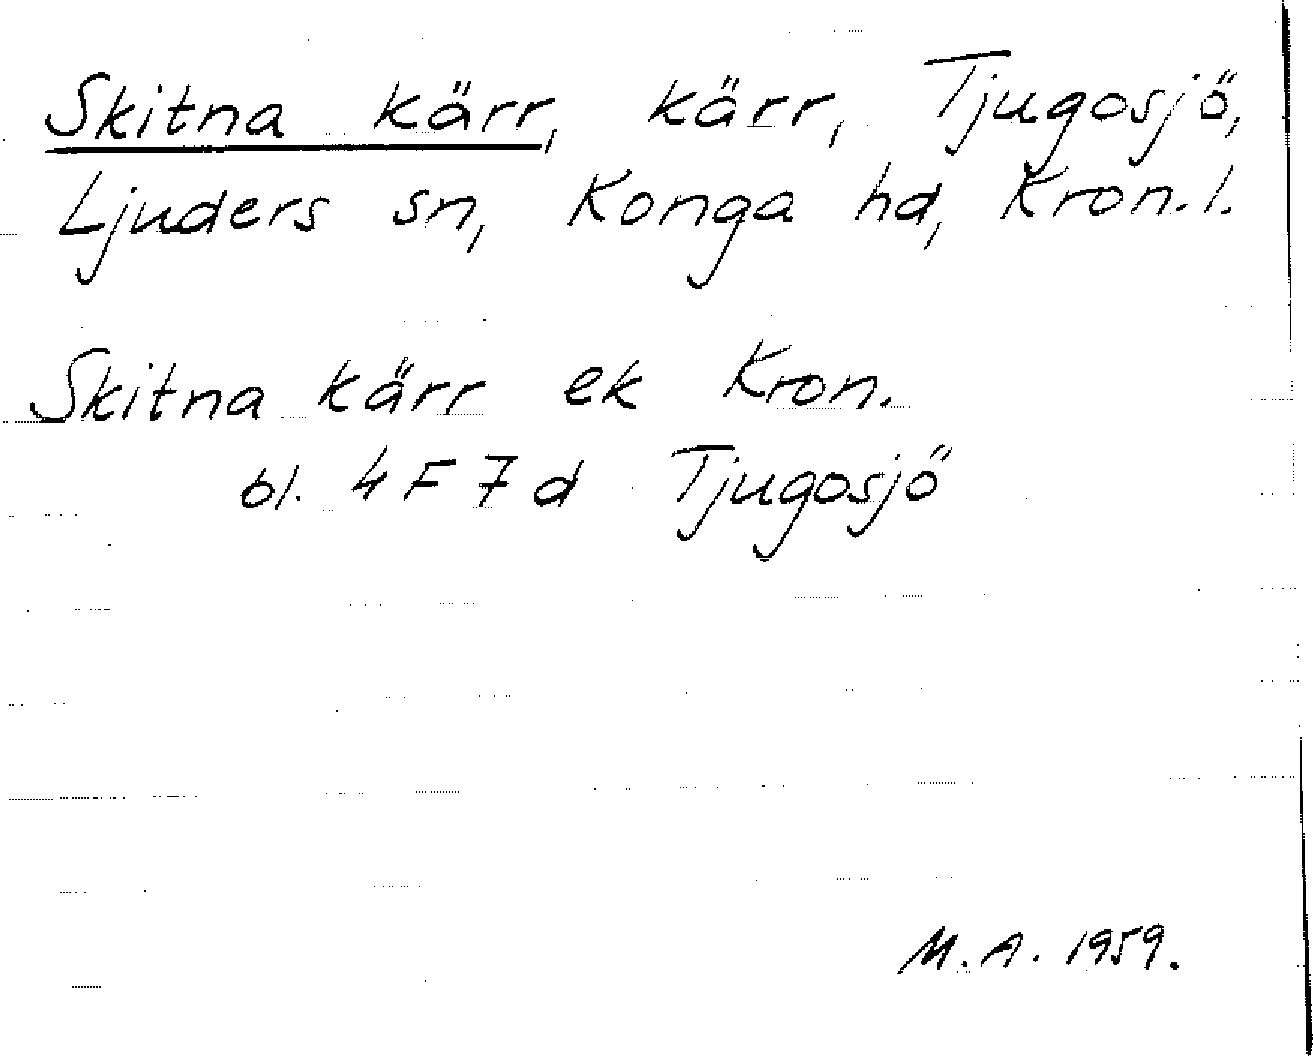 Skitna kärr, kärr, Tjugosjö,
Ljuders sn, Konga hd, Kron.l.
Skitna kärr ek Kron.
bl. 4F7d Tjugosjö
M.A. 1959.